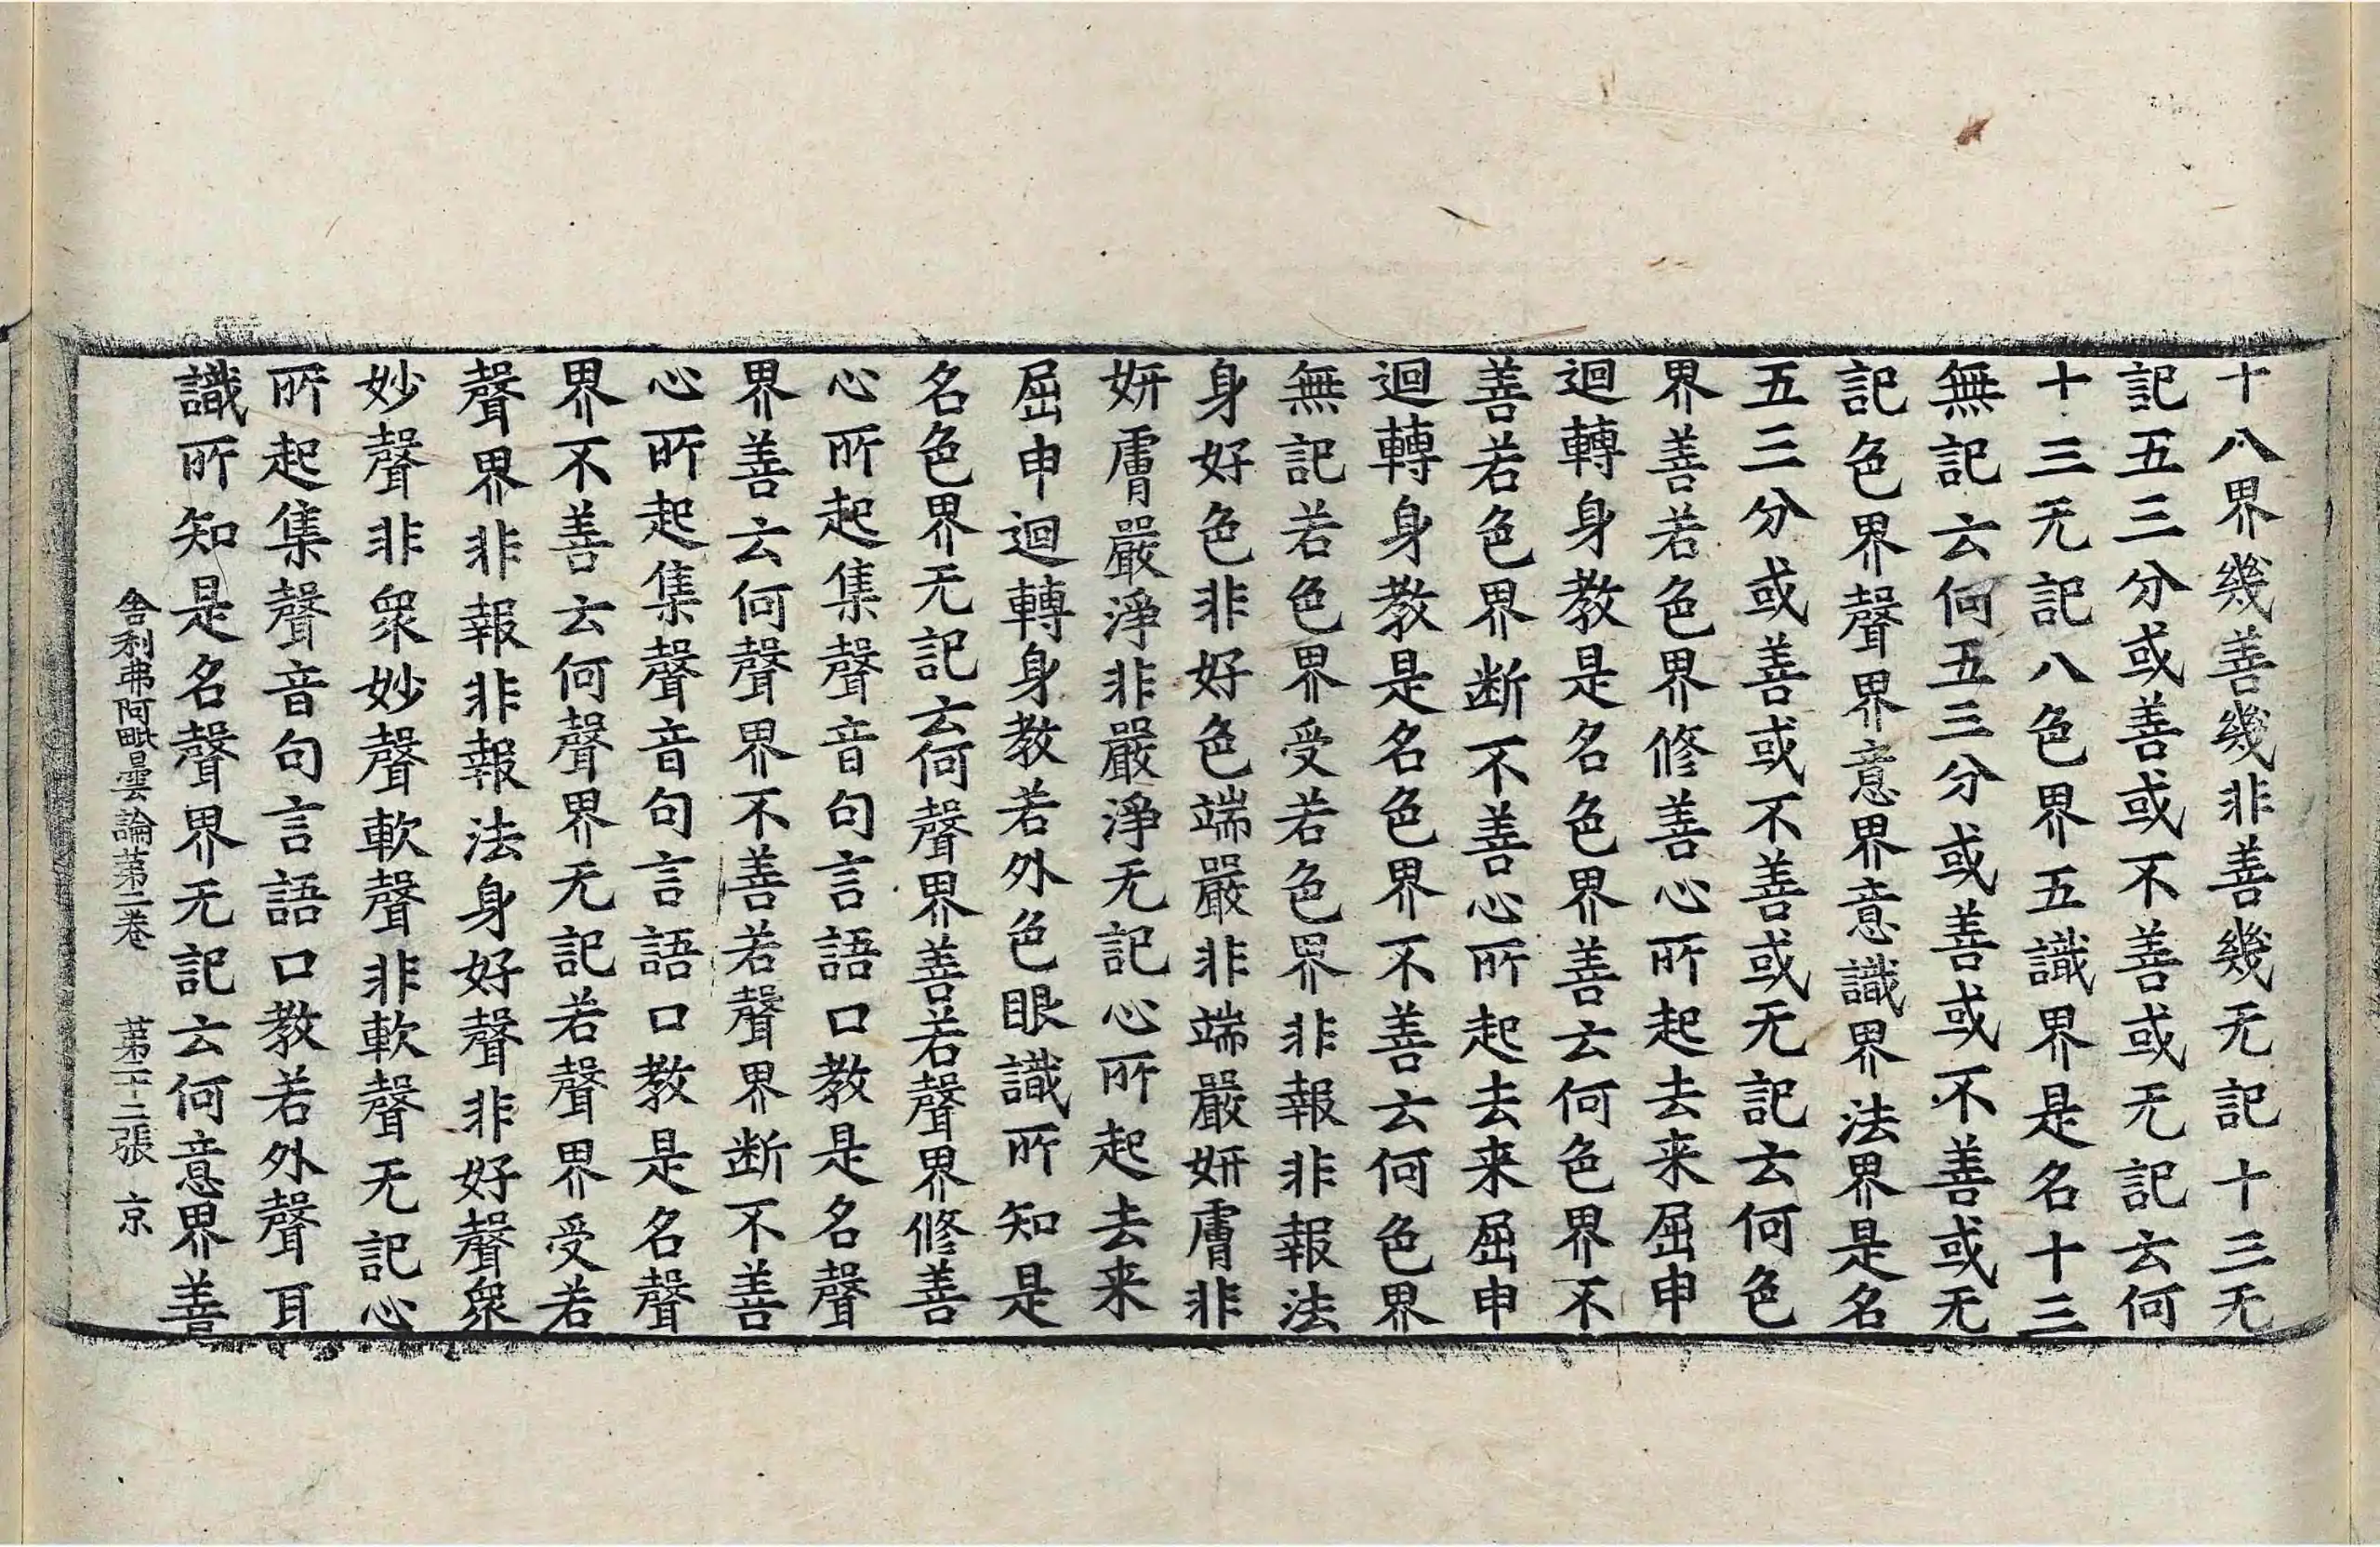 十八界幾善幾非善幾无記十三无
記五三分或善或不善或无記云何
十三无記八色界五識界是名十三
無記云何五三分或善或不善或无
記色界聲界意界意識界法界是名
五三分或善或不善或无記云何色
界善若色界修善心所起去来屈申
迴轉身教是名色界善云何色界不
善若色界断不善心所起去来屈申
迴轉身教是名色界不善云何色界
無記若色界受若色界非報非報法
身好色非好色端嚴非端嚴妍膚非
妍膚嚴淨非嚴淨无記心所起去来
屈申迴轉身教若外色眼識所知是
名色界无記云何聲界善若聲界修善
心所起集聲音句言語口教是名聲
界善云何聲界不善若聲界断不善
心所起集聲音句言語口教是名聲
界不善云何聲界无記若聲界受若
聲界非報非報法身好聲非好聲衆
妙聲非衆妙聲軟聲非軟聲无記心
所起集聲音句言語口教若外聲耳
識所知是名聲界无記云何意界善
舍利弗阿毗曇論苐二卷 苐二十二張 京